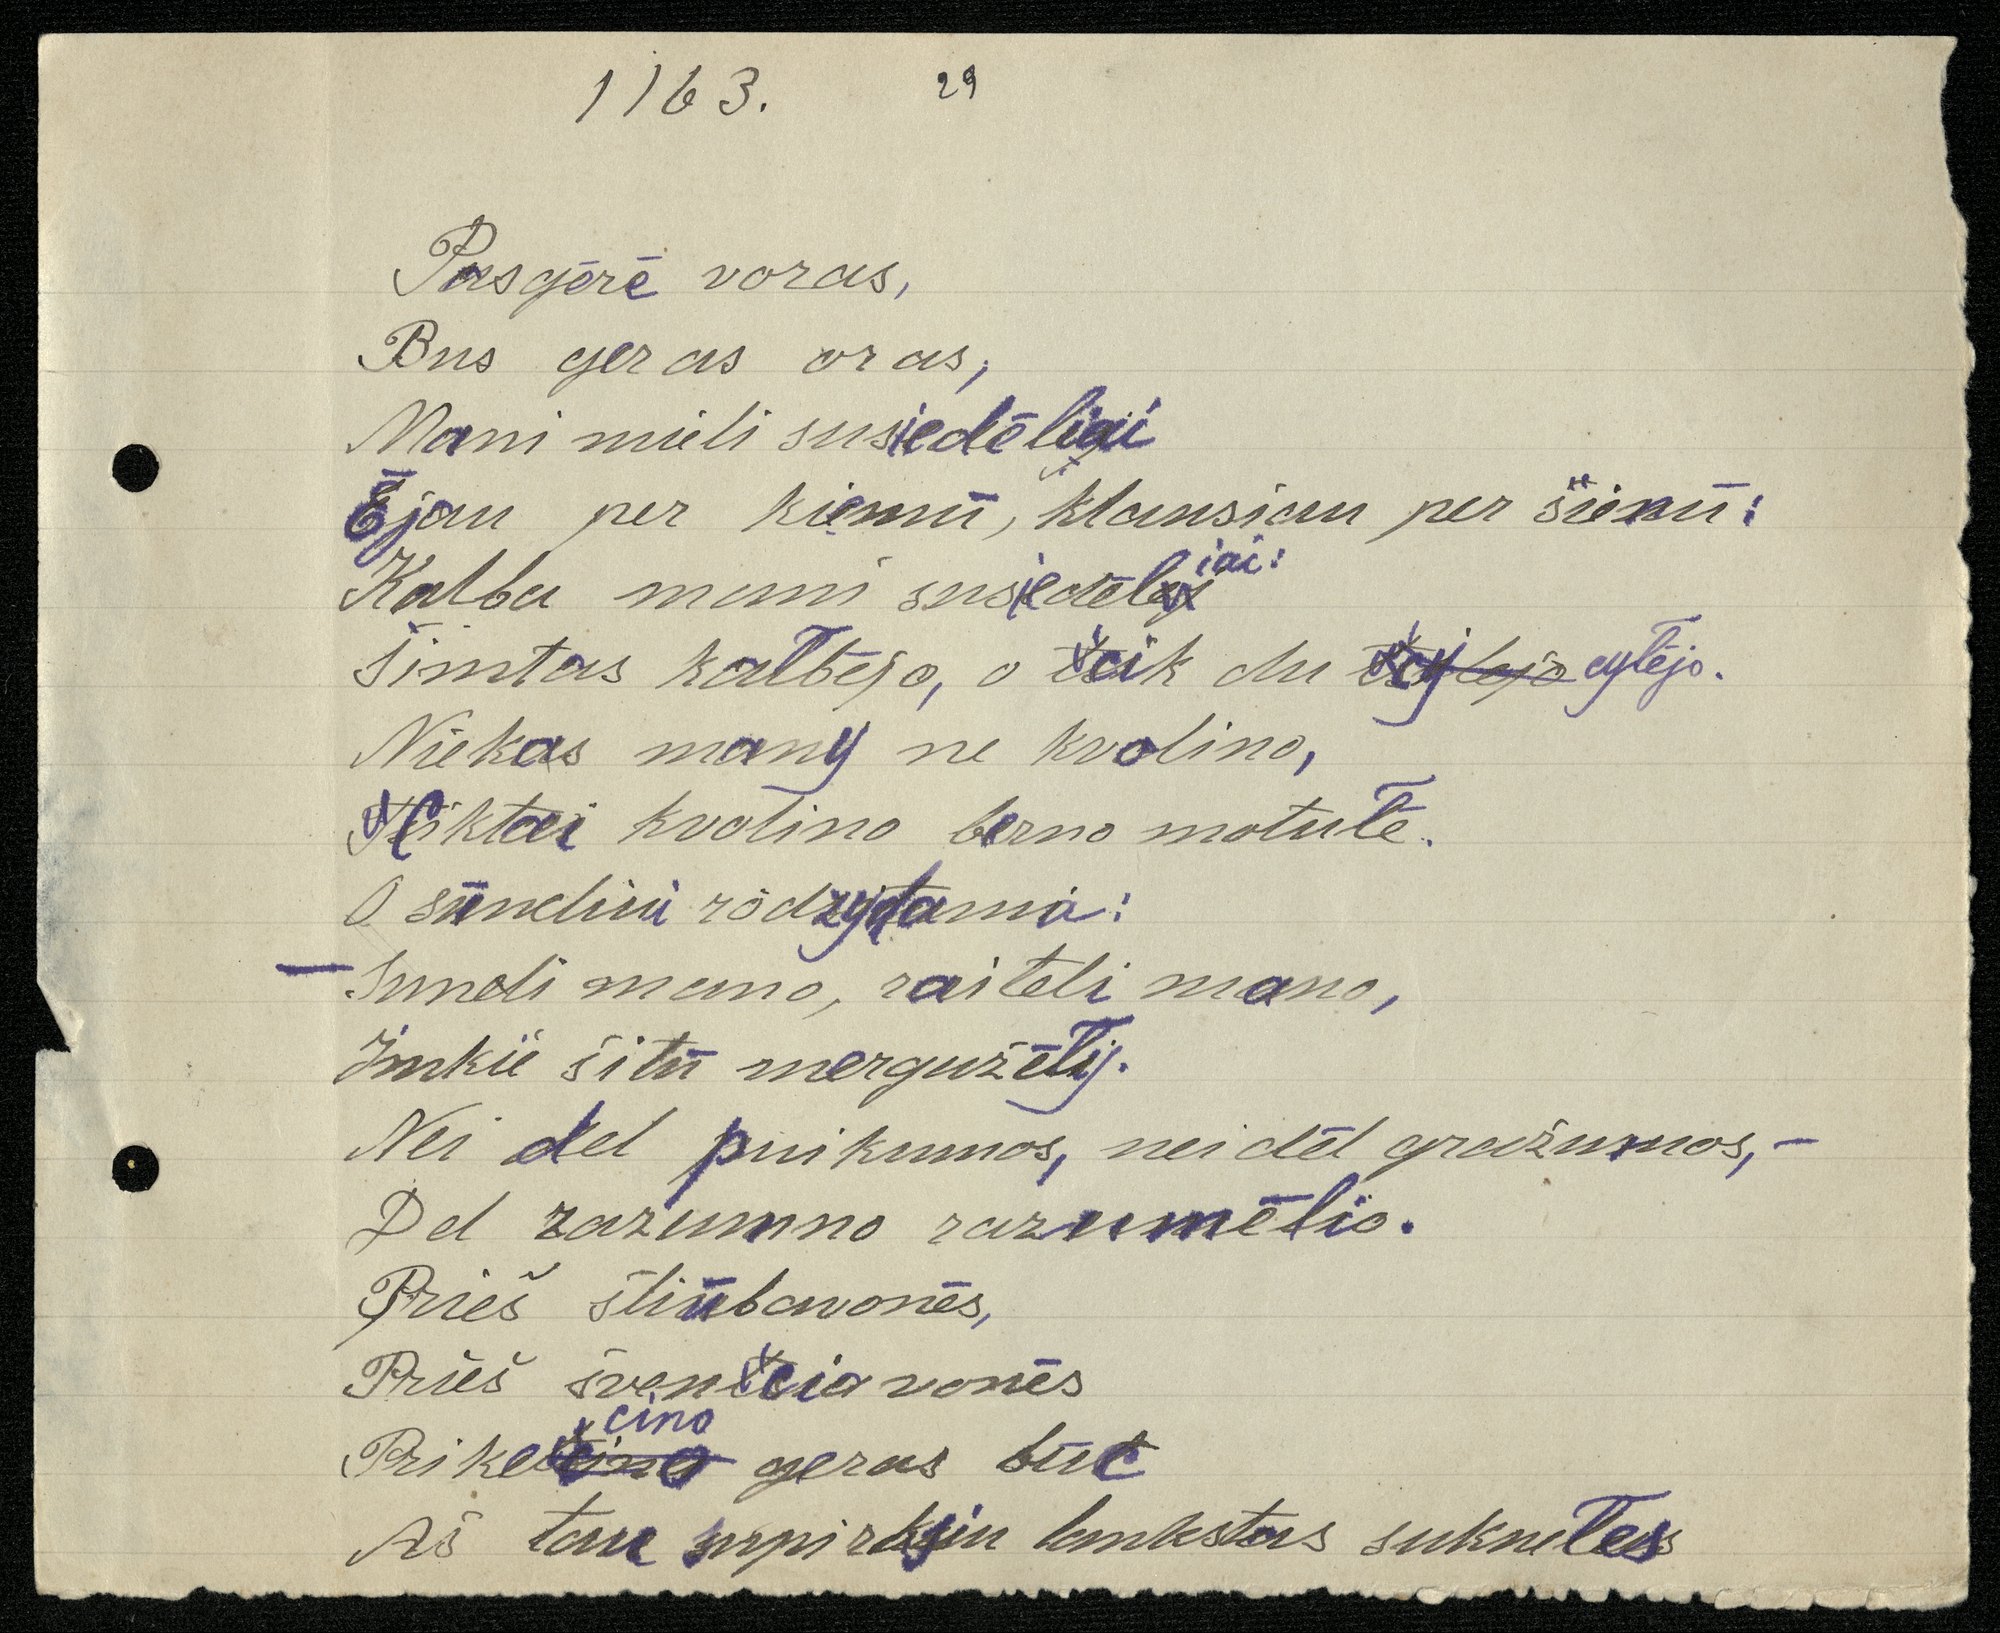 1163. 29
Pasgėrė voras,
Bus geras oras,
Mani mieli susiedēliai
Ējau per kiemū, klausiau per šienū:
Kalba mani susiedēliai:
Šimtas kalbējo, o cik du cylējo.
Niekas many ne kvolino,
Ciktai kvolino berno motulē.
O sūneliui rodzydama:
— Suneli mano, raiteli mano,
Imkie šitū mergužēlįj.
Nei del puikumos, nei dēl gražumos, –
Del razumno razumēlio.
Prieš šliūbavonēs,
Prieš švenciavonēs
Prikecino geras būc
Aš tau supirksiu lankstas sukneles